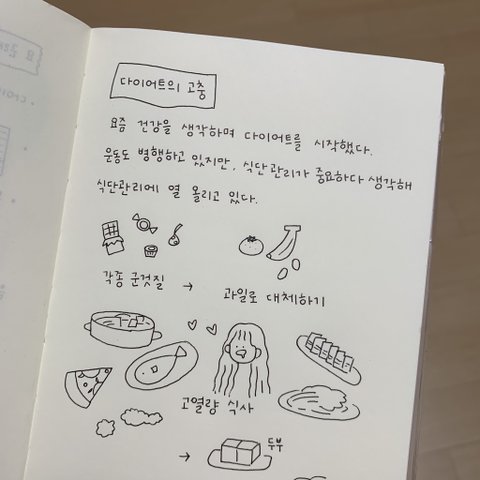 다이어트의 고충
요즘 건강을 생각하며 다이어트를 시작했다.
운동도 병행하고 있지만, 식단관리가 중요하다 생각해
식단관리에 열 올리고 있다.
각종 군것질 → 과일로 대체하기
고열량 식사
→ 두부